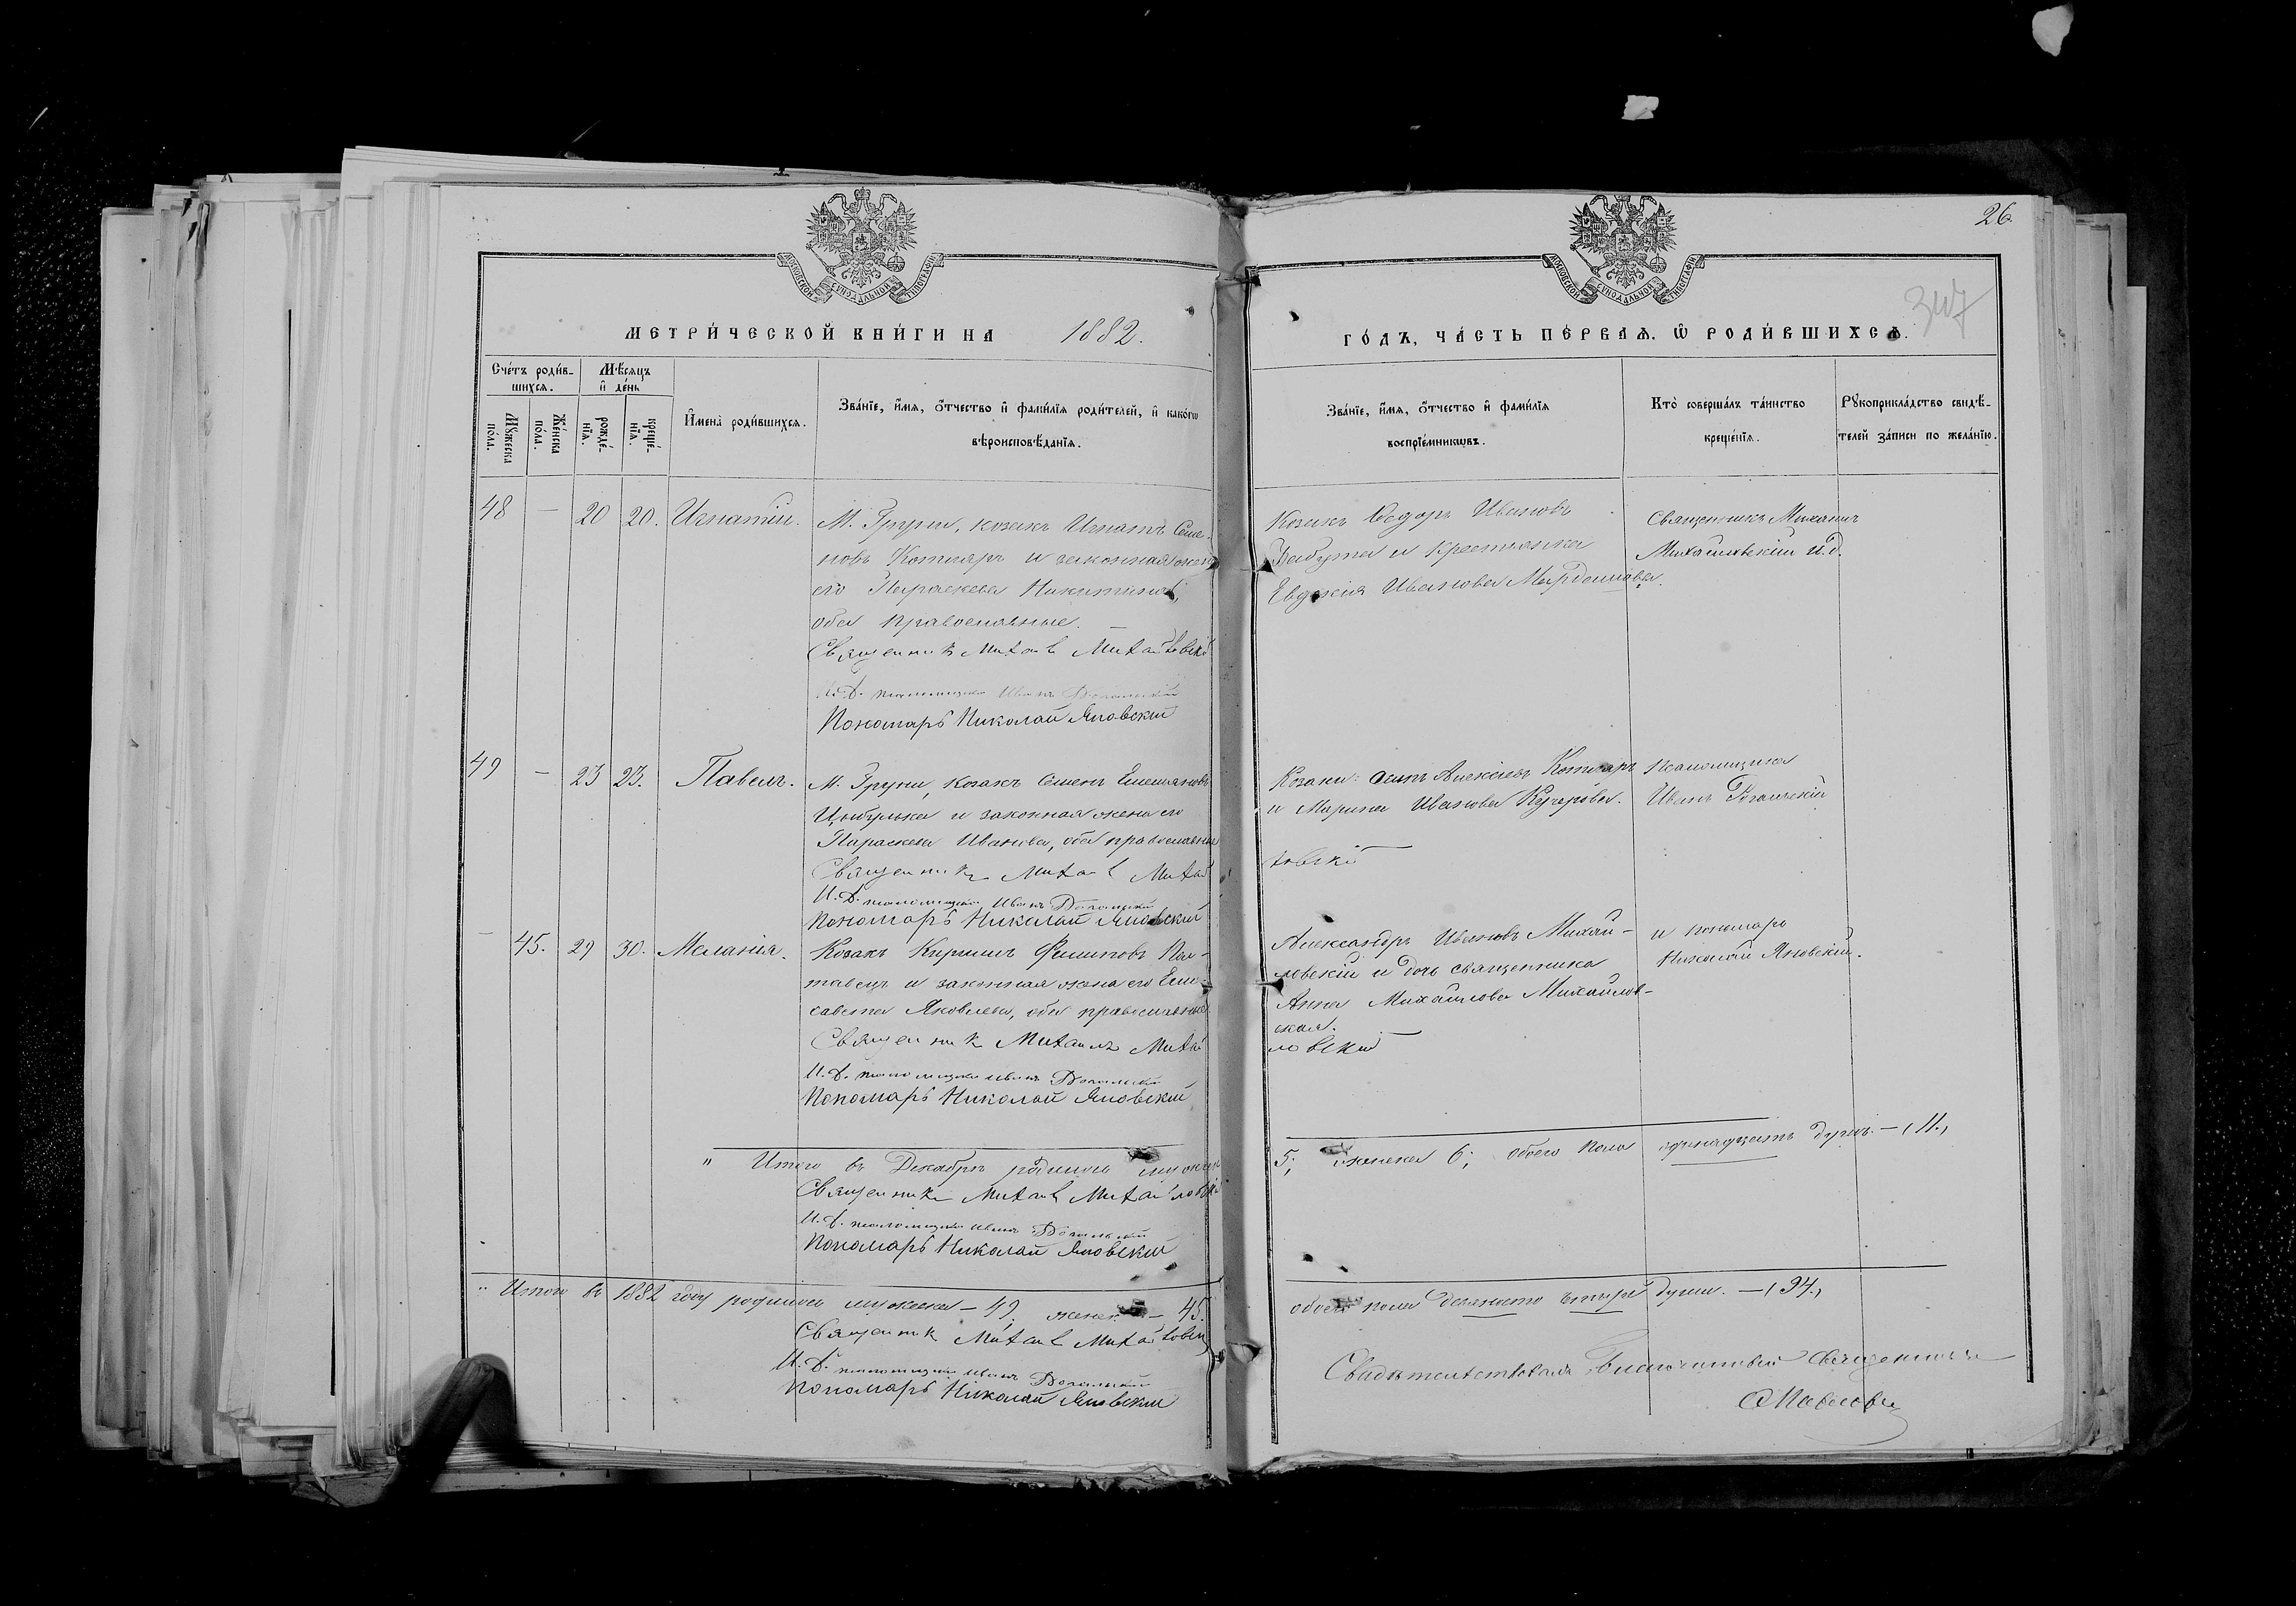 26
347
МЕТРИ́ЧЕСКОЙ КНИ́ГИ НА 1882.
ГО́ДЪ, ЧА́СТЬ ПЕ́РВАЯ, Ѡ РОДИ́ВШИХСЯ.
Сче́тъ роди́в-
шихся.
Мѣ́сяцъ
и҆ де́нь
Мꙋ́жеска
по́ла.
Же́нска
по́ла.
рожде́-
нїя.
креще́-
нїя.
И҆мена̀ роди́вшихся.
Зва́нїе, и҆́мя, ѻ҆́тчество и҆ фами́лїя роди́телей, и҆ како́гѡ
вѣроисповѣ́данїя.
Зва́нїе, и҆́мя, ѻ҆́тчество и҆ фами́лїя
воспрїе́мникѡвъ.
Кто̀ соверша́лъ та́инство
креще́нїя.
Рꙋкоприкла́дство свидѣ́-
телей за́писи по жела́нїю.
48 — 20 20. Игнатій.
М. Груни, козакъ Игнатъ Семе-
новъ Котляръ и законная жена
его Параскева Никитина,
оба православные.
Священникъ Михаилъ Михайловскій
И. Д. псаломщика Иванъ
Пономарь Николай Яновскій
Козакъ Ѳедоръ Ивановъ
и крестьянка
Евдокія Иванова
Священникъ Михаилъ
Михайловскій и. д.
49 — 23 23. Павелъ.
М. Груни, козакъ Семенъ Емельяновъ
Цыбулька и законная жена его
Параскева Иванова, оба православные
Священникъ Михаилъ Михай
ловскій
И. Д. псаломщика Иванъ
Пономарь Николай Яновскій
Козаки: Алексѣевъ Котляръ
и Марина Иванова Кучерова.
псаломщика
Иванъ
— 45. 29 30. Меланія.
Козакъ Кириллъ Филиповъ Пол-
тавецъ и законная жена его Ели-
савета Яковлева, оба православные
Священникъ Михаилъ Михай
ловскій
И. Д. псаломщика Иванъ
Пономарь Николай Яновскій
Александръ Ивановъ Михай-
ловскій и дочь священника
Анна Михайлова Михайлов-
ская.
и пономарь
Николай Яновскій.
" Итого въ Декабрѣ родилось мужеска
5; женска 6; обоего пола одинадцать душъ. — (11.)
Священникъ Михаилъ Михайловскій
И. Д. псаломщика Иванъ
Пономарь Николай Яновскій
" Итого въ 1882 году родилось мужеска — 49; женска — 45.
обоего пола девяносто четыре души. — (94.)
Священникъ Михаилъ Михайловскій
И. Д. псаломщика Иванъ
Пономарь Николай Яновскій
Свидѣтельствовалъ Благочинный Священникъ